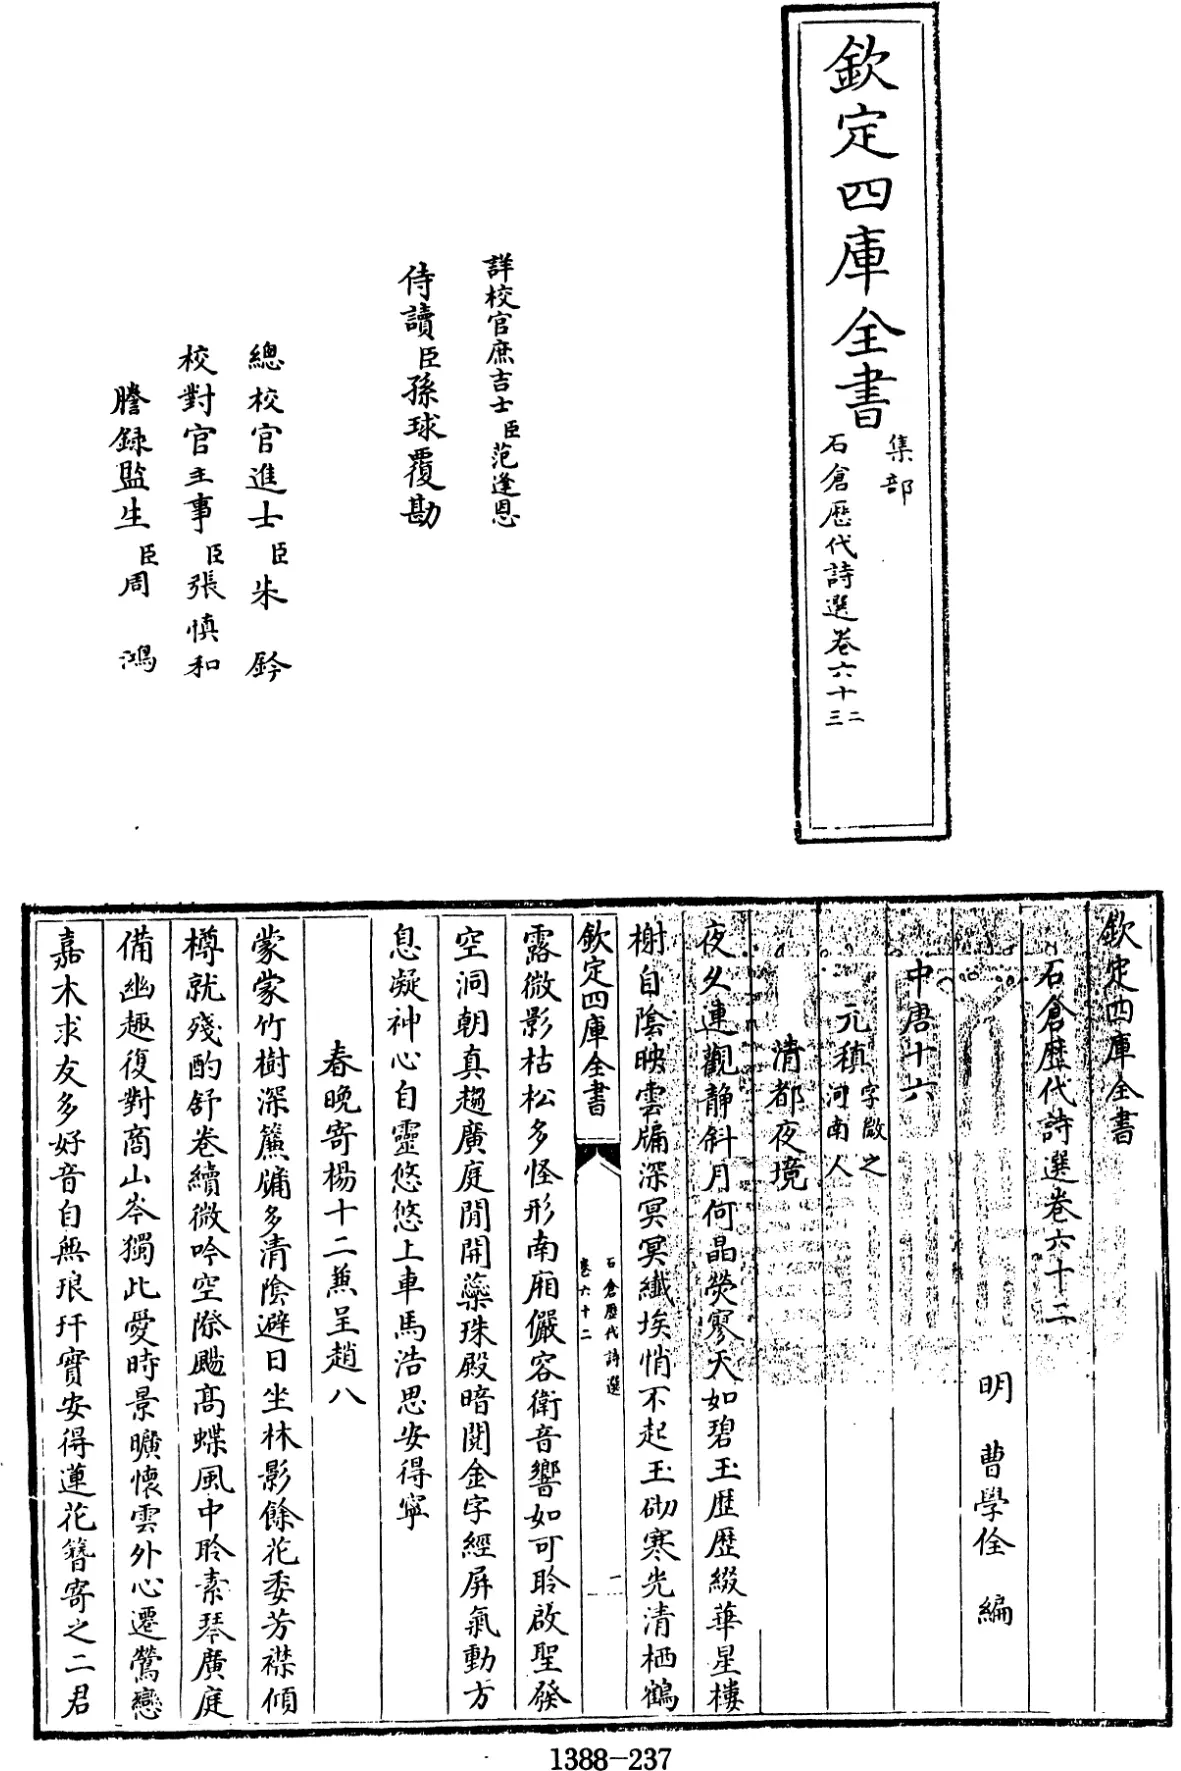 欽定四庫全書
集部
石倉歷代詩選卷六十二
三
詳校官庶吉士臣范逢恩
侍讀臣孫球覆勘
總校官進士臣朱鈐
校對官主事臣張慎和
謄錄監生臣周鴻
欽定四庫全書
石倉歷代詩選卷六十二
明 曹學佺 編
中唐十六
元稹字微之河南人
清都夜境
夜久連觀静斜月何晶熒寥天如碧玉歷歷綴華星樓
榭自陰映雲牖深冥冥纖埃悄不起玉砌寒光清栖鶴
欽定四庫全書
石倉歷代詩選
卷六十二
一
露微影枯松多怪形南廂儼容衛音響如可聆啟聖發
空洞朝真趨廣庭閒開蘂珠殿暗閲金字經屏氣動方
息凝神心自靈悠悠上車馬浩思安得寧
春晚寄楊十二兼呈趙八
蒙蒙竹樹深簾牖多清陰避日坐林影餘花委芳襟傾
樽就殘酌舒卷續微吟空際颺高蝶風中聆素琴廣庭
備幽趣復對商山岑獨此愛時景曠懷雲外心遷鶯戀
嘉木求友多好音自無琅玕實安得蓮花簪寄之二君
1388-237